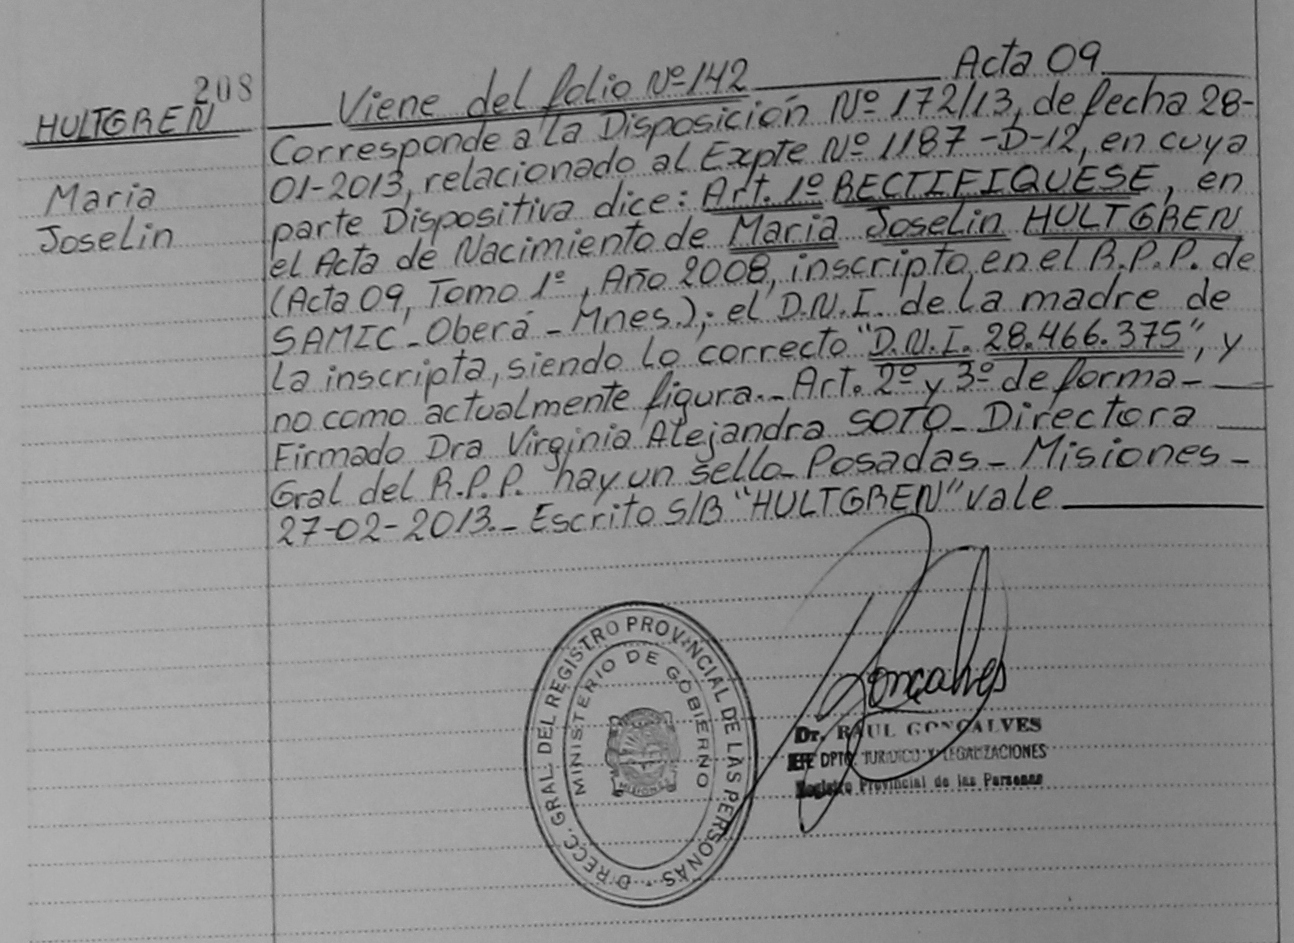 208
HULTGREN
Maria
Joselin
Viene del folio Nº 142 Acta 09
Corresponde a la Disposición Nº 172/13, de fecha 28-
01-2013, relacionado al Expte Nº 1187-D-12, en cuya
parte Dispositiva dice: Art. 1º RECTIFIQUESE, en
el Acta de Nacimiento de Maria Joselin HULTGREN
(Acta 09, Tomo 1º, Año 2008, inscripto en el R.P.P. de
SAMIC - Oberá - Mnes.); el D.N.I. de la madre de
la inscripta, siendo lo correcto "D.N.I. 28.466.375", y
no como actualmente figura.- Art. 2º y 3º de forma-
Firmado Dra Virginia Alejandra SOTO - Directora
Gral del R.P.P. hay un sello - Posadas - Misiones -
27-02-2013.- Escrito S/B "HULTGREN" vale
DIRECC. GRAL. DEL REGISTRO PROVINCIAL DE LAS PERSONAS
MINISTERIO DE GOBIERNO
MISIONES
Goncalves
Dr. RAUL GONCALVES
JEFE DPTO. JURIDICO Y LEGALIZACIONES
Registro Provincial de las Personas